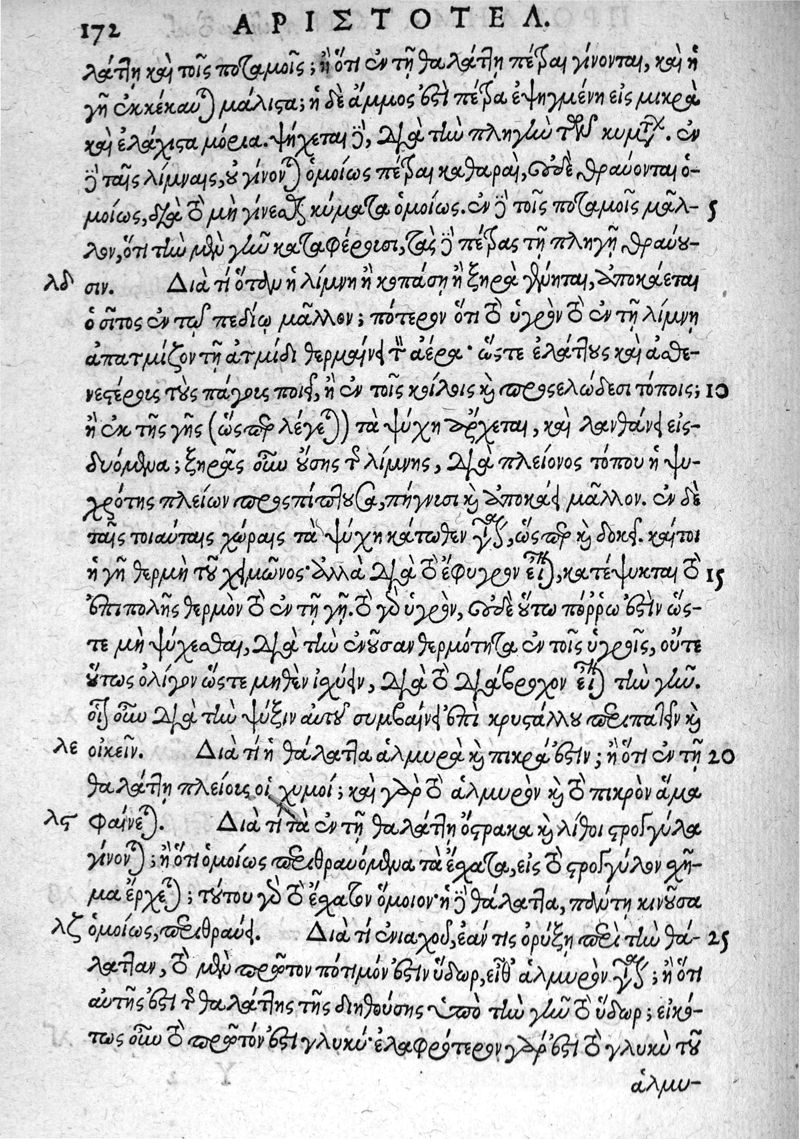 172 ΑΡΙΣΤΟΤΕΛ.
λάττῃ καὶ τοῖς ποταμοῖς; ἢ ὅτι ἐν τῇ θαλάττῃ πέτραι γίνονται, καὶ ἡ
γῆ ἐκκέκαυται μάλιστα; ἡ δὲ ἄμμος ἐστὶ πέτρα ἐψηγμένη εἰς μικρὰ
καὶ ἐλάχιστα μόρια. ψήχεται δὲ, διὰ τὴν πληγὴν τῶν κυμάτων. ἐν
δὲ ταῖς λίμναις, οὐ γίνονται ὁμοίως πέτραι καθαραὶ, οὐδὲ θραύονται ὁ-
μοίως, διὰ τὸ μὴ γίνεσθαι κύματα ὁμοίως. ἐν δὲ τοῖς ποταμοῖς μᾶλ- 5
λον, ὅτι τὴν μὲν γῆν καταφέρουσι, τὰς δὲ πέτρας τῇ πληγῇ θραύου-
λδ σιν. Διὰ τί ὅταν ἡ λίμνη ἢ κοπάσῃ ἢ ξηρὰ γένηται, ἀποκάεται
ὁ σῖτος ἐν τῷ πεδίῳ μᾶλλον; πότερον ὅτι τὸ ὑγρὸν τὸ ἐν τῇ λίμνῃ
ἀπατμίζον τῇ ἀτμίδι θερμαίνει τὸν ἀέρα· ὥστε ἐλάττους καὶ ἀσθε-
νεστέρους τοὺς πάγους ποιεῖ, ἢ ἐν τοῖς κοίλοις καὶ προςελώδεσι τόποις; 10
ἢ ἐκ τῆς γῆς (ὥσπερ λέγεται) τὰ ψύχη ἄρχεται, καὶ λανθάνει εἰς-
δυόμενα; ξηρᾶς οὖν οὔσης τῆς λίμνης, διὰ πλείονος τόπου ἡ ψυ-
χρότης πλείων προςπίπτουσα, πήγνυσι καὶ ἀποκάει μᾶλλον. ἐν δὲ
ταῖς τοιαύταις χώραις τὰ ψύχη κάτωθεν γίνεται, ὥσπερ καὶ δοκεῖ. καίτοι
ἡ γῆ θερμὴ τοῦ χειμῶνος· ἀλλὰ διὰ τὸ ἔφυγρον εἶναι, κατέψυκται τὸ 15
ἐπιπολῆς θερμὸν τὸ ἐν τῇ γῇ. τὸ γὰρ ὑγρὸν, οὐδὲ οὕτω πόῤῥω ἐστὶν ὥς-
τε μὴ ψύχεσθαι, διὰ τὴν ἐνοῦσαν θερμότητα ἐν τοῖς ὑγροῖς, οὔτε
οὕτως ὀλίγον ὥστε μηθὲν ἰσχύειν, διὰ τὸ διάβροχον εἶναι τὴν γῆν.
οἷον οὖν διὰ τὴν ψύξιν αὐτοῦ συμβαίνει ἐπὶ κρυστάλλου περιπατεῖν καὶ
λε οἰκεῖν. Διὰ τί ἡ θάλαττα ἁλμυρὰ καὶ πικρά ἐστιν; ἢ ὅτι ἐν τῇ 20
θαλάττῃ πλείους οἱ χυμοί; καὶ γὰρ τὸ ἁλμυρὸν καὶ τὸ πικρὸν ἅμα
λϛ φαίνεται. Διὰ τί τὰ ἐν τῇ θαλάττῃ ὄστρακα καὶ λίθοι στρογγύλα
γίνονται; ἢ ὅτι ὁμοίως περιθραυόμενα τὰ ἔσχατα, εἰς τὸ στρογγύλον σχῆ-
μα ἔρχεται; τούτου γὰρ τὸ ἔσχατον ὅμοιον· ἡ δὲ θάλαττα, πάντῃ κινοῦσα
λζ ὁμοίως, περιθραύει. Διὰ τί ἐνιαχοῦ, ἐάν τις ὀρύξῃ περὶ τὴν θά- 25
λατταν, τὸ μὲν πρῶτον πότιμόν ἐστιν ὕδωρ, εἶθ' ἁλμυρὸν γίνεται; ἢ ὅτι
αὐτῆς ἐστὶ τῆς θαλάττης τῆς διηθούσης ὑπὸ τὴν γῆν τὸ ὕδωρ; εἰκό-
τως οὖν τὸ πρῶτόν ἐστι γλυκύ· ἐλαφρότερον γάρ ἐστι τὸ γλυκὺ τοῦ
ἁλμυ-